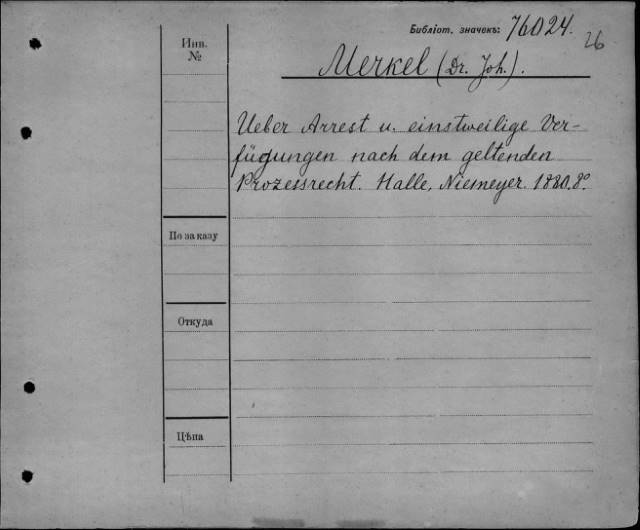 Библіот. значекъ: 76024.
26
Инв.
№
Merkel (Dr. Joh.).
Ueber Arrest u. einstweilige Ver-
fügungen nach dem geltenden
Prozessrecht. Halle, Niemeyer. 1880. 8º.
По заказу
Откуда
Цѣна